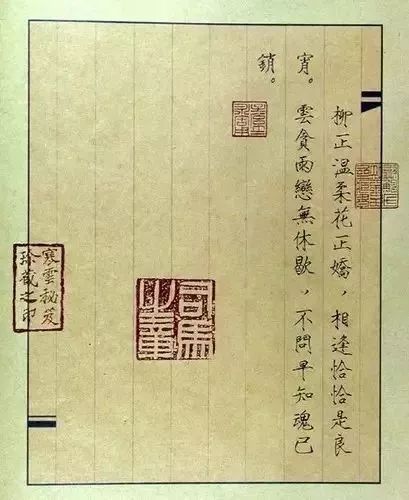 柳正溫柔花正嬌，相逢恰恰是良
宵。雲貪雨戀無休歇，不問早知魂已
銷。
寒雲秘笈
珍藏之印